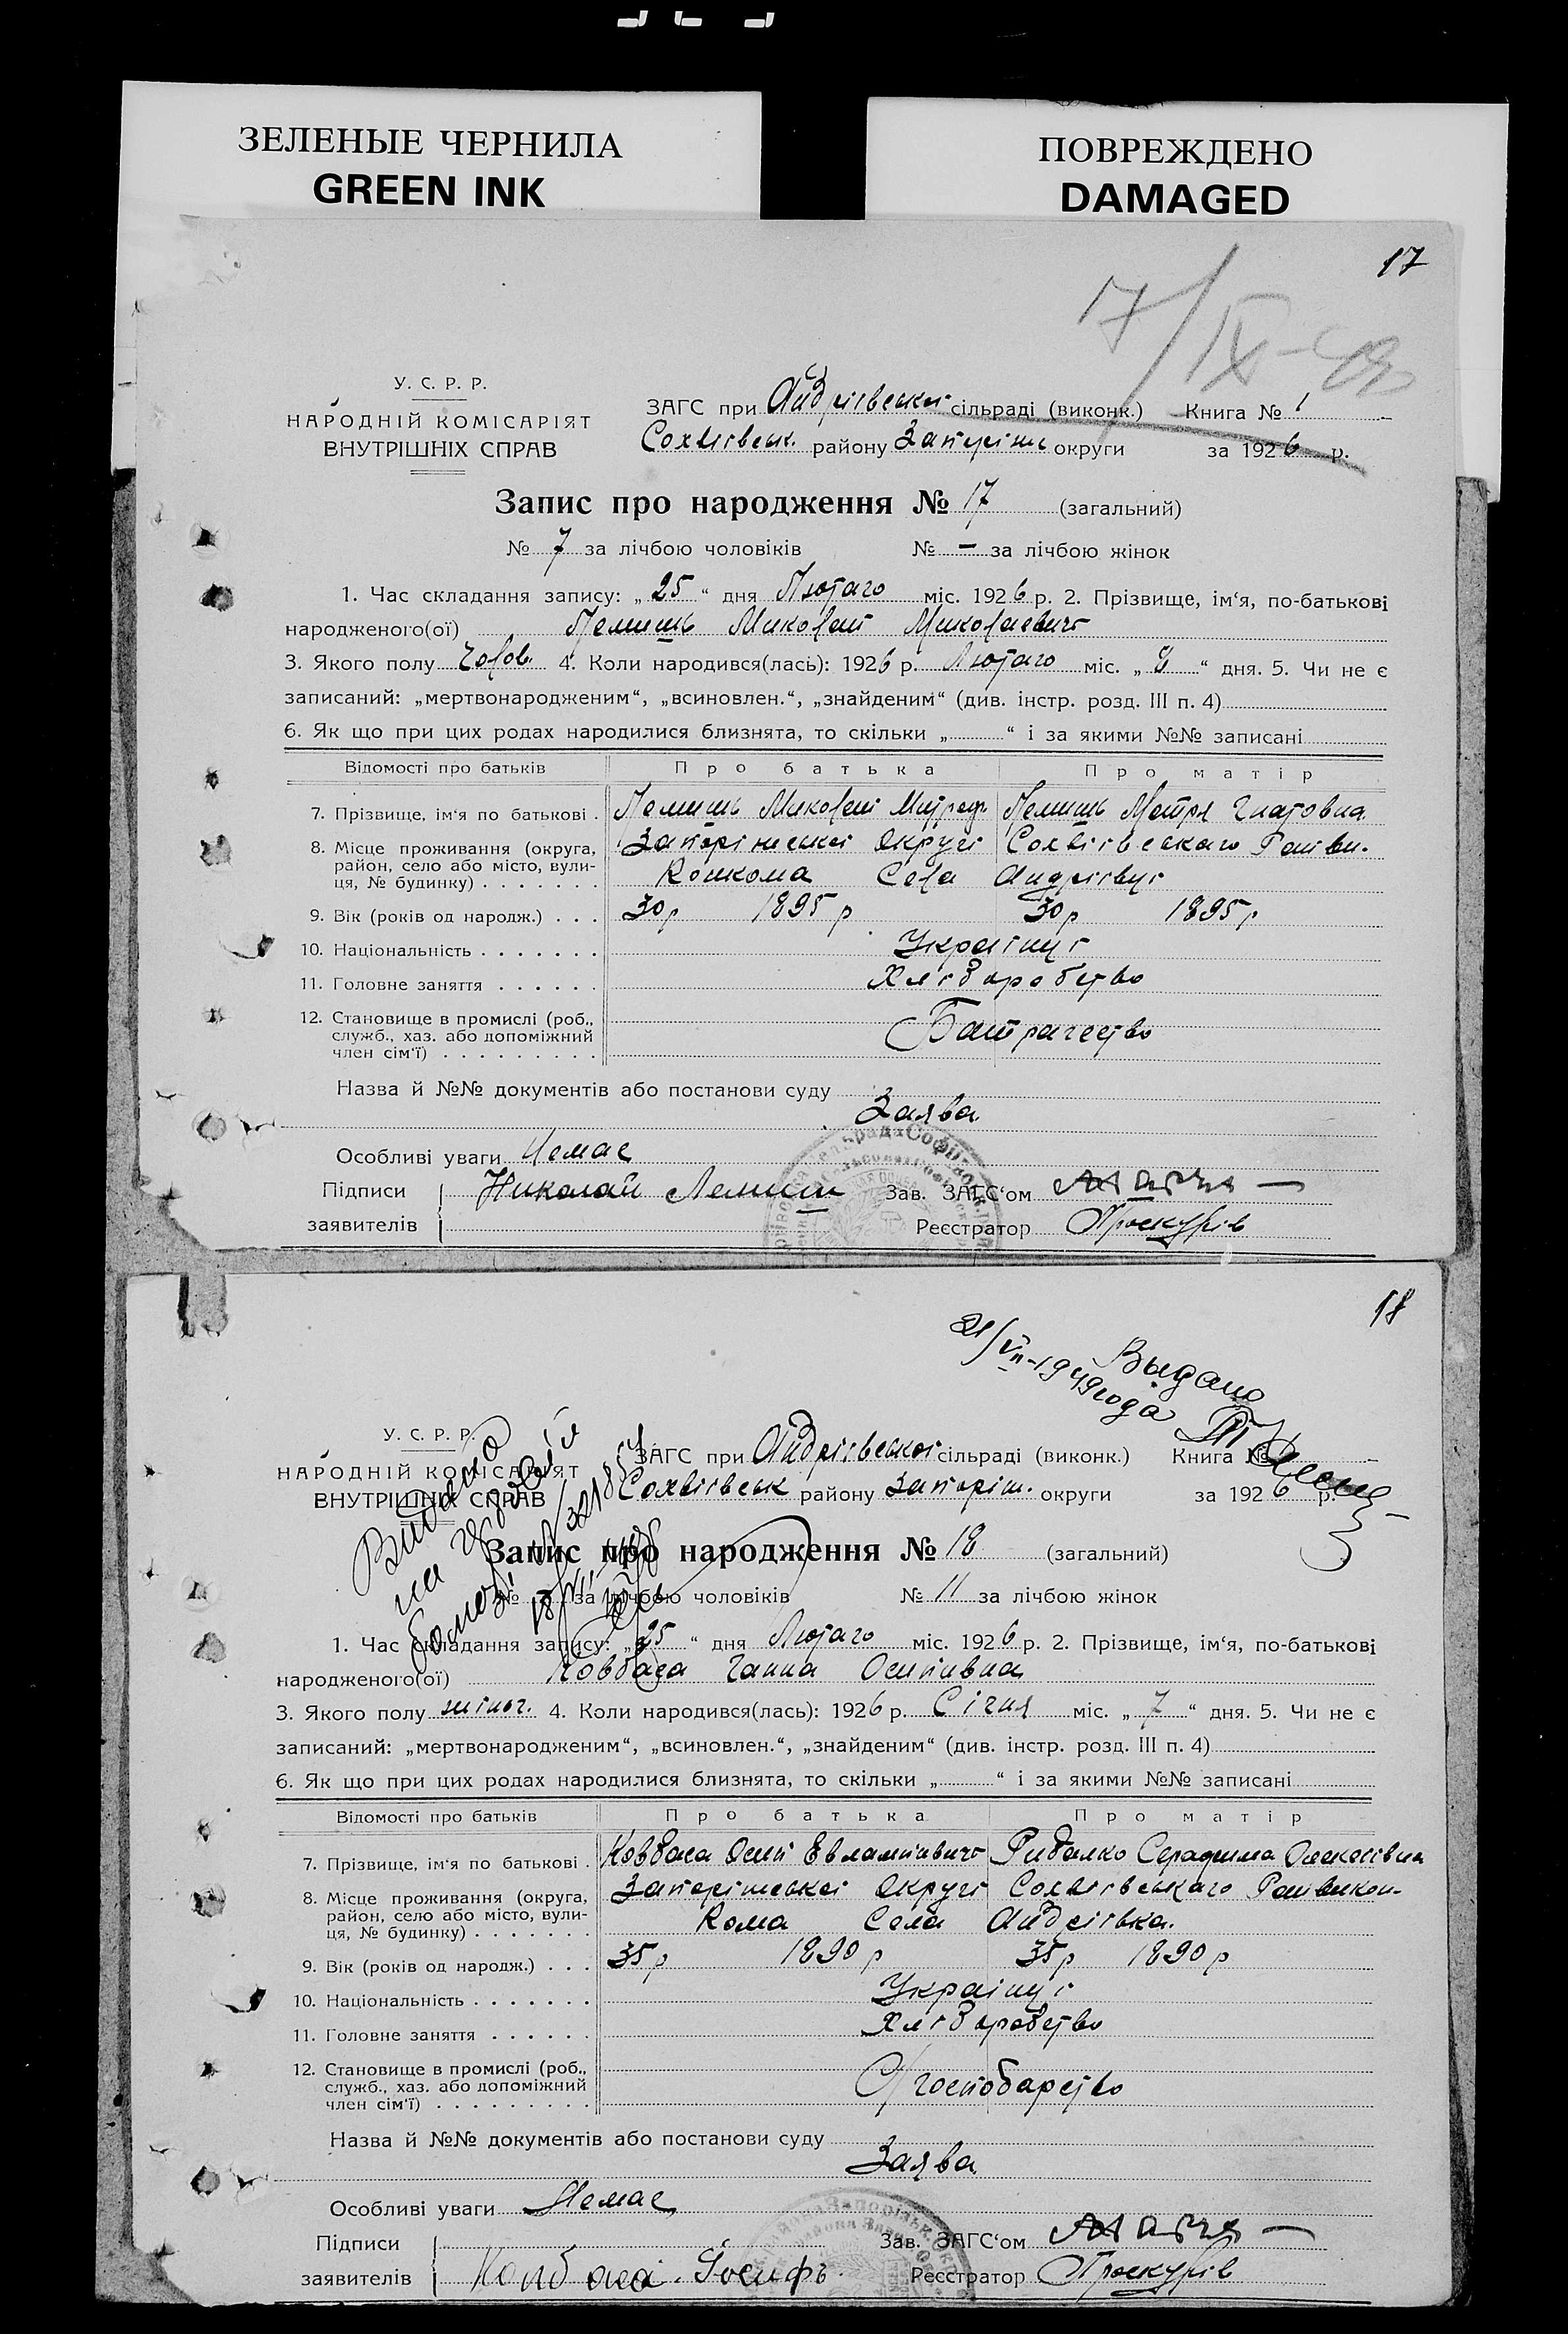 ЗЕЛЕНЫЕ ЧЕРНИЛА
GREEN INK
ПОВРЕЖДЕНО
DAMAGED
17
17/IX-49
У. С. Р. Р.
НАРОДНІЙ КОМІСАРІЯТ
ВНУТРІШНІХ СПРАВ
ЗАГС при Андріївської сільраді (виконк.) Книга № 1
району Запоріш округи за 1926 р.
Запис про народження № 17 (загальний)
№ 7 за лічбою чоловіків № – за лічбою жінок
1. Час складання запису: „25“ дня Лютаго міс. 1926 р. 2. Прізвище, ім‘я, по-батькові
народженого(ої) Лемишь Миколай Миколаевичь
3. Якого полу Чолов. 4. Коли народився(лась): 1926 р. Лютаго міс. „8“ дня. 5. Чи не є
записаний: „мертвонародженим“, „всиновлен.“, „знайденим“ (див. інстр. розд. III п. 4)
6. Як що при цих родах народилися близнята, то скільки „ “ і за якими №№ записані
Відомості про батьків Про батька Про матір
7. Прізвище, ім‘я по батькові . Лемишь Миколай Лемишь Мотря Гнатовна
8. Місце проживання (округа, район, село або місто, вулиця, № будинку) . . . . . . . Запоріжської Округи
Села Андріівці
9. Вік (років од народж.) . . . 30р 1895 р 30р 1895 р
10. Національність . . . . . . . Украінці
11. Головне заняття . . . . . . Хлібаробство
12. Становище в промислі (роб., служб., хаз. або допоміжний член сім‘ї) . . . . . . . . . Батрачество
Назва й №№ документів або постанови суду
Заява
Особливі уваги Немае
Підписи Николай Лемиш Зав. ЗАГС‘ом
заявителів Реєстратор Проскурів
18
21/VII-1949 года
Выдано
У. С. Р. Р.
НАРОДНІЙ КОМІСАРІЯТ
ВНУТРІШНІХ СПРАВ
Видано
ЗАГС при Андріївської сільраді (виконк.) Книга №
району Запоріш. округи за 1926 р.
Запис про народження № 18 (загальний)
№ за лічбою чоловіків № 11 за лічбою жінок
1. Час складання запису: „25“ дня Лютаго міс. 1926 р. 2. Прізвище, ім‘я, по-батькові
народженого(ої) Ковбаса Ганна Осипівна
3. Якого полу жіноч. 4. Коли народився(лась): 1926 р. Січня міс. „7“ дня. 5. Чи не є
записаний: „мертвонародженим“, „всиновлен.“, „знайденим“ (див. інстр. розд. III п. 4)
6. Як що при цих родах народилися близнята, то скільки „ “ і за якими №№ записані
Відомості про батьків Про батька Про матір
7. Прізвище, ім‘я по батькові . Ковбаса Осип Евлампиевичь Рибалко Серафима Олексіївна
8. Місце проживання (округа, район, село або місто, вулиця, № будинку) . . . . . . . Запоріжської Округи
Кома Села Андріівка.
9. Вік (років од народж.) . . . 35р 1890 р 35р 1890 р
10. Національність . . . . . . . Украінці
11. Головне заняття . . . . . . Хлібаробство
12. Становище в промислі (роб., служб., хаз. або допоміжний член сім‘ї) . . . . . . . . . С/господарство
Назва й №№ документів або постанови суду
Заява
Особливі уваги Немае
Підписи Зав. ЗАГС‘ом
заявителів Колбаса Іосифъ Реєстратор Проскурів